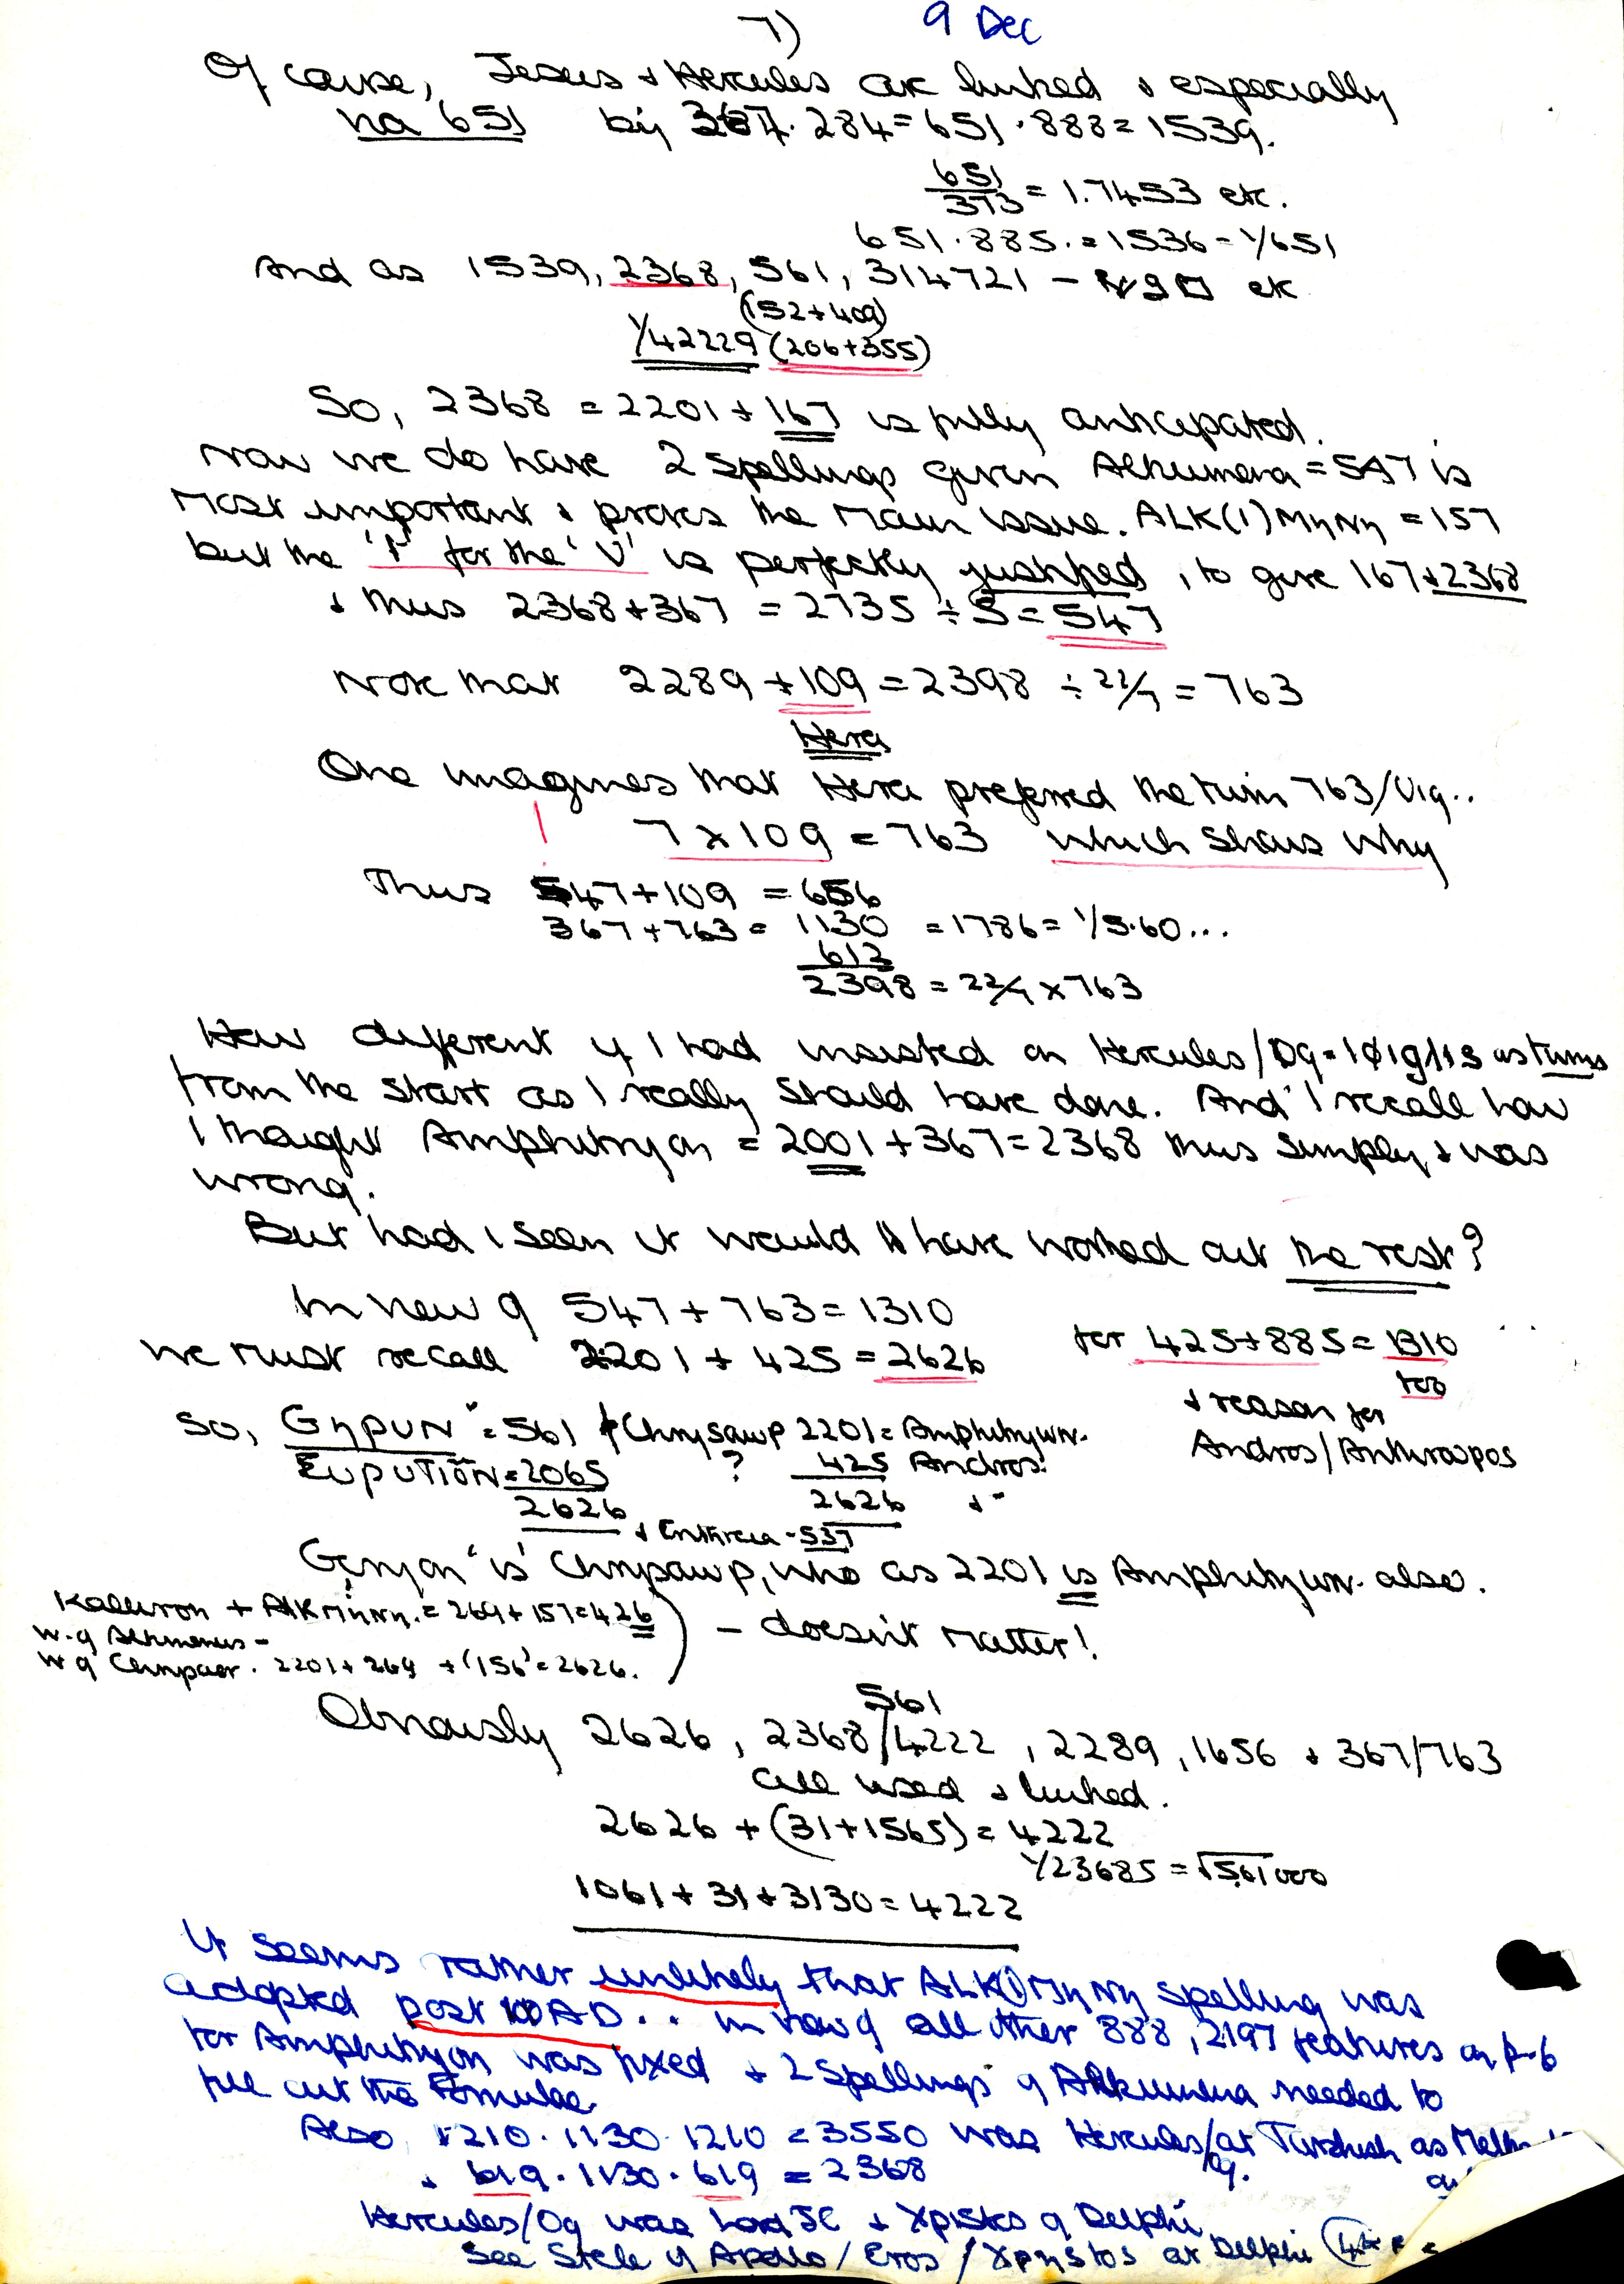 7) 9 Dec
Of cause, Jesus + Hercules are linked + especially
via 651 by 367. 284 = 651 . 888 = 1539.
651/373 = 1.7453 etc.
651 . 885. = 1536 = 1/651
And as 1539, 2368, 561, 314721 – etc
(152+409)
1/42229 (206+355)
So, 2368 = 2201 + 167 is fully anticipated.
Now we do have 2 spellings given Alkumena = 547 is
most important + proves the main issue. ALK(I)MηNη = 157
but the 'I' for the 'U' is perfectly justified, to give 167+2368
+ thus 2368+367 = 2735 ÷ 5 = 547
Note that 2289 + 109 = 2398 ÷ 22/7 = 763
Hera
One imagines that Hera preferred the turn 763/Vig..
! 7 x 109 = 763 which shows why
Thus 547+109 = 656
367+763 = 1130 = 1786 = 1/5.60...
612
2398 = 22/7 x 763
How different if I had insisted on Hercules/Og = as turns
from the start as I really should have done. And I recall how
I thought Amphitryon = 2001 + 367 = 2368 thus simply, + was
wrong.
But had I seen it would I have worked out the rest?
In view of 547 + 763 = 1310
we must recall 2201 + 425 = 2626 for 425+885 = 1310
too
+ reason for
Andros/Anthropos
So, GηpUN = 561 Chrysawp 2201 = Amphitrywn.
EUpUTION = 2065 ? 425 Andros!
2626 2626
+ Erithreia - 537
Geryon 'is' Chrysawp, who as 2201 is Amphitrywn. also.
Kalliron + AlKmηNη. = 269 + 157 = 426
– doesn't matter!
2201 + 269 + (156) = 2626.
561
Obviously 2626, 2368/4222, 2289, 1656 + 367/763
all used + linked.
2626 + (31+1565) = 4222
1/23685 = √561000
1061 + 31 + 3130 = 4222
It seems rather unlikely that ALK(I)MηNη spelling was
adopted post 100 AD.. in view of all other 888, 2197 features on p-6
for Amphitryon was fixed + 2 spellings of Alkumena needed to
fill out the Formulae.
Also, 1210 . 1130 . 1210 = 3550 was Hercules/Og. at Turdush as
+ 619 . 1130 . 619 = 2368
Hercules/Og was JC + Xpistos of Delphi
See Stele of Apollo / Eros / Xpηstos at Delphi